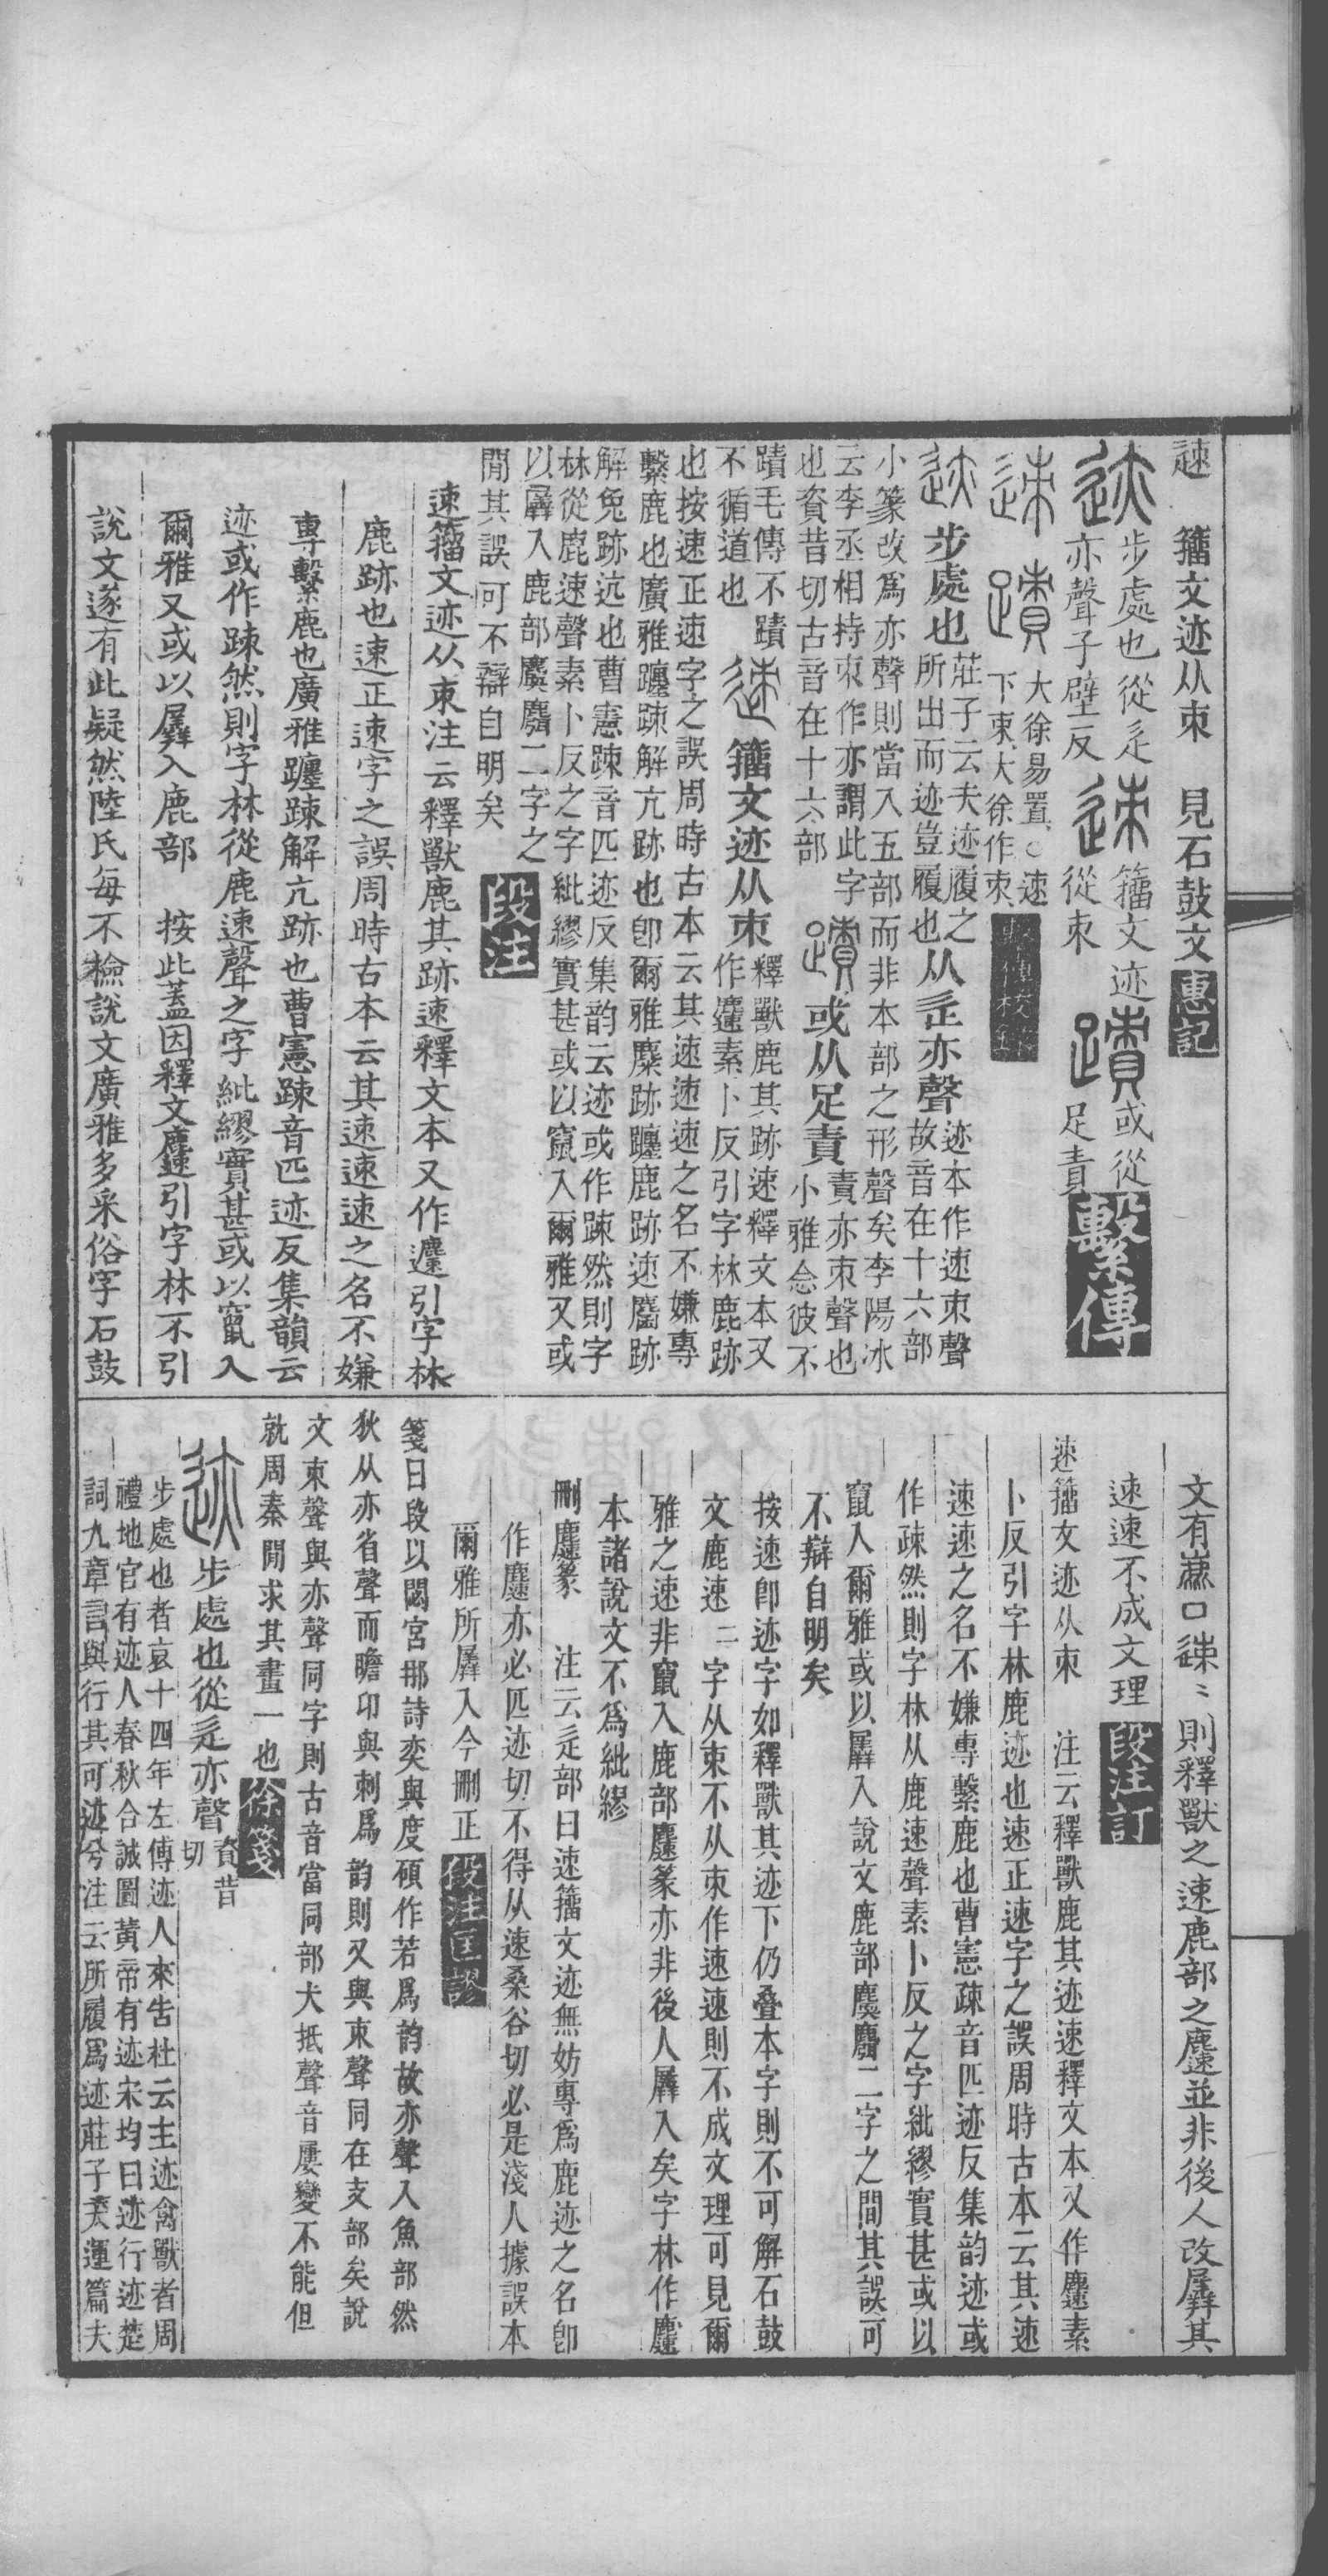 䢌　籒文迹从朿　見石鼓文　惠記
迹　步處也從辵
亦聲子壁反
𨒪　籒文迹
從朿
蹟　或從
足責　繫傳
𨒪　蹟　大徐易置○速
下束大徐作朿　繫傳校錄
迹　步處也　莊子云夫迹履之
所出而迹豈履也　从辵亦聲　迹本作速朿聲
故音在十六部
小篆改爲亦聲則當入五部而非本部之形聲矣李陽冰
云李丞相持朿作亦謂此字
也資昔切古音在十六部
蹟　或从足責　責亦朿聲也
小雅念彼不
蹟毛傳不蹟
不循道也　速　籒文迹从朿　釋獸鹿其跡速釋文本又
作䴪素卜反引字林鹿跡
也按速正速字之誤周時古本云其速速速之名不嫌專
繫鹿也廣雅躔踈解亢跡也卽爾雅麋跡躔鹿跡速麕跡
解兔跡迒也曹憲踈音匹迹反集韵云迹或作踈然則字
林從鹿速聲素卜反之字紕繆實甚或以竄入爾雅又或
以羼入鹿部麌麕二字之
閒其誤可不辯自明矣　段注
速籒文迹从朿注云釋獸鹿其跡速釋文本又作䴪引字林
鹿跡也速正速字之誤周時古本云其速速速之名不嫌
專繫鹿也廣雅躔踈解亢跡也曹憲踈音匹迹反集韻云
迹或作踈然則字林從鹿速聲之字紕繆實甚或以竄入
爾雅又或以羼入鹿部　按此蓋因釋文䴪引字林不引
說文遂有此疑然陸氏每不檢說文廣雅多采俗字石鼓
文有麃口𨒪〻則釋獸之速鹿部之䴪並非後人改羼其
速速不成文理　段注訂
速籒文迹从朿　注云釋獸鹿其迹速釋文本又作䴪素
卜反引字林鹿迹也速正速字之誤周時古本云其速
速速之名不嫌專繫鹿也曹憲踈音匹迹反集韵迹或
作踈然則字林从鹿速聲素卜反之字紕繆實甚或以
竄入爾雅或以羼入說文鹿部麌麕二字之間其誤可
不辯自明矣
按速卽迹字如釋獸其迹下仍叠本字則不可解石鼓
文鹿速〻字从朿不从束作速速則不成文理可見爾
雅之速非竄入鹿部䴪篆亦非後人羼入矣字林作䴪
本諸說文不爲紕繆
刪䴪篆　注云辵部曰速籒文迹無妨專爲鹿迹之名卽
作䴪亦必匹迹切不得从速桑谷切必是淺人據誤本
爾雅所羼入今刪正　段注匡謬
箋曰段以閟宮那詩奕與度碩作若爲韵故亦聲入魚部然
狄从亦省聲而瞻卬與刺爲韵則又與朿聲同在支部矣說
文朿聲與亦聲同字則古音當同部大抵聲音屢變不能但
就周秦閒求其畫一也　徐箋
迹　步處也從辵亦聲　資昔
切
步處也者哀十四年左傳迹人來告杜云主迹禽獸者周
禮地官有迹人春秋合誠圖黃帝有迹宋均曰迹行迹楚
詞九章言與行其可迹兮注云所履爲迹莊子天運篇夫